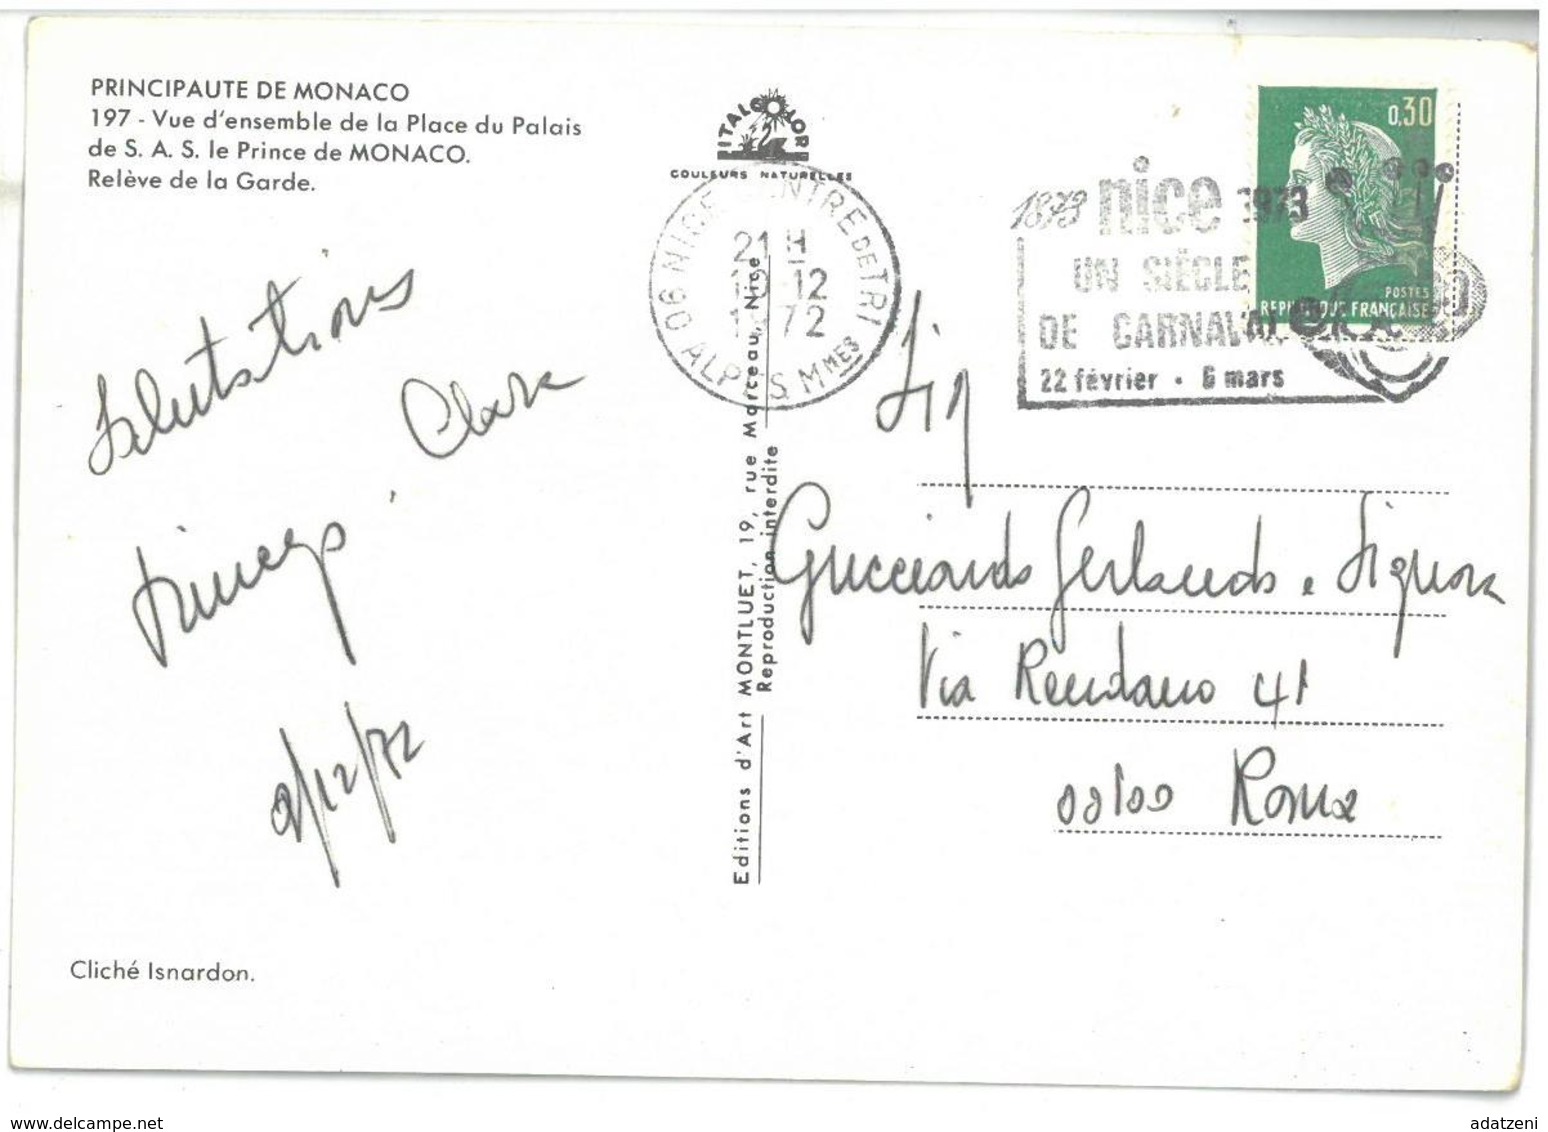 PRINCIPAUTE DE MONACO
197 - Vue d'ensemble de la Place du Palais
de S. A. S. le Prince de MONACO.
Relève de la Garde.
ITALCOLOR
COULEURS NATURELLES
06 NICE CENTRE DE TRI
21 H
12
1972
ALPES Mmes
1873 nice 1973
UN SIÈCLE
DE CARNAVAL
22 février • 6 mars
0,30
POSTES
REPUBLIQUE FRANÇAISE
Salutations
Clara
2/12/72
Sig
Gucciardo Gerlando e Signora
Via Rendano 41
00100 Roma
Editions d'Art MONTLUET, 19, rue Marceau, Nice
Reproduction interdite
Cliché Isnardon.
www.delcampe.net
adatzeni